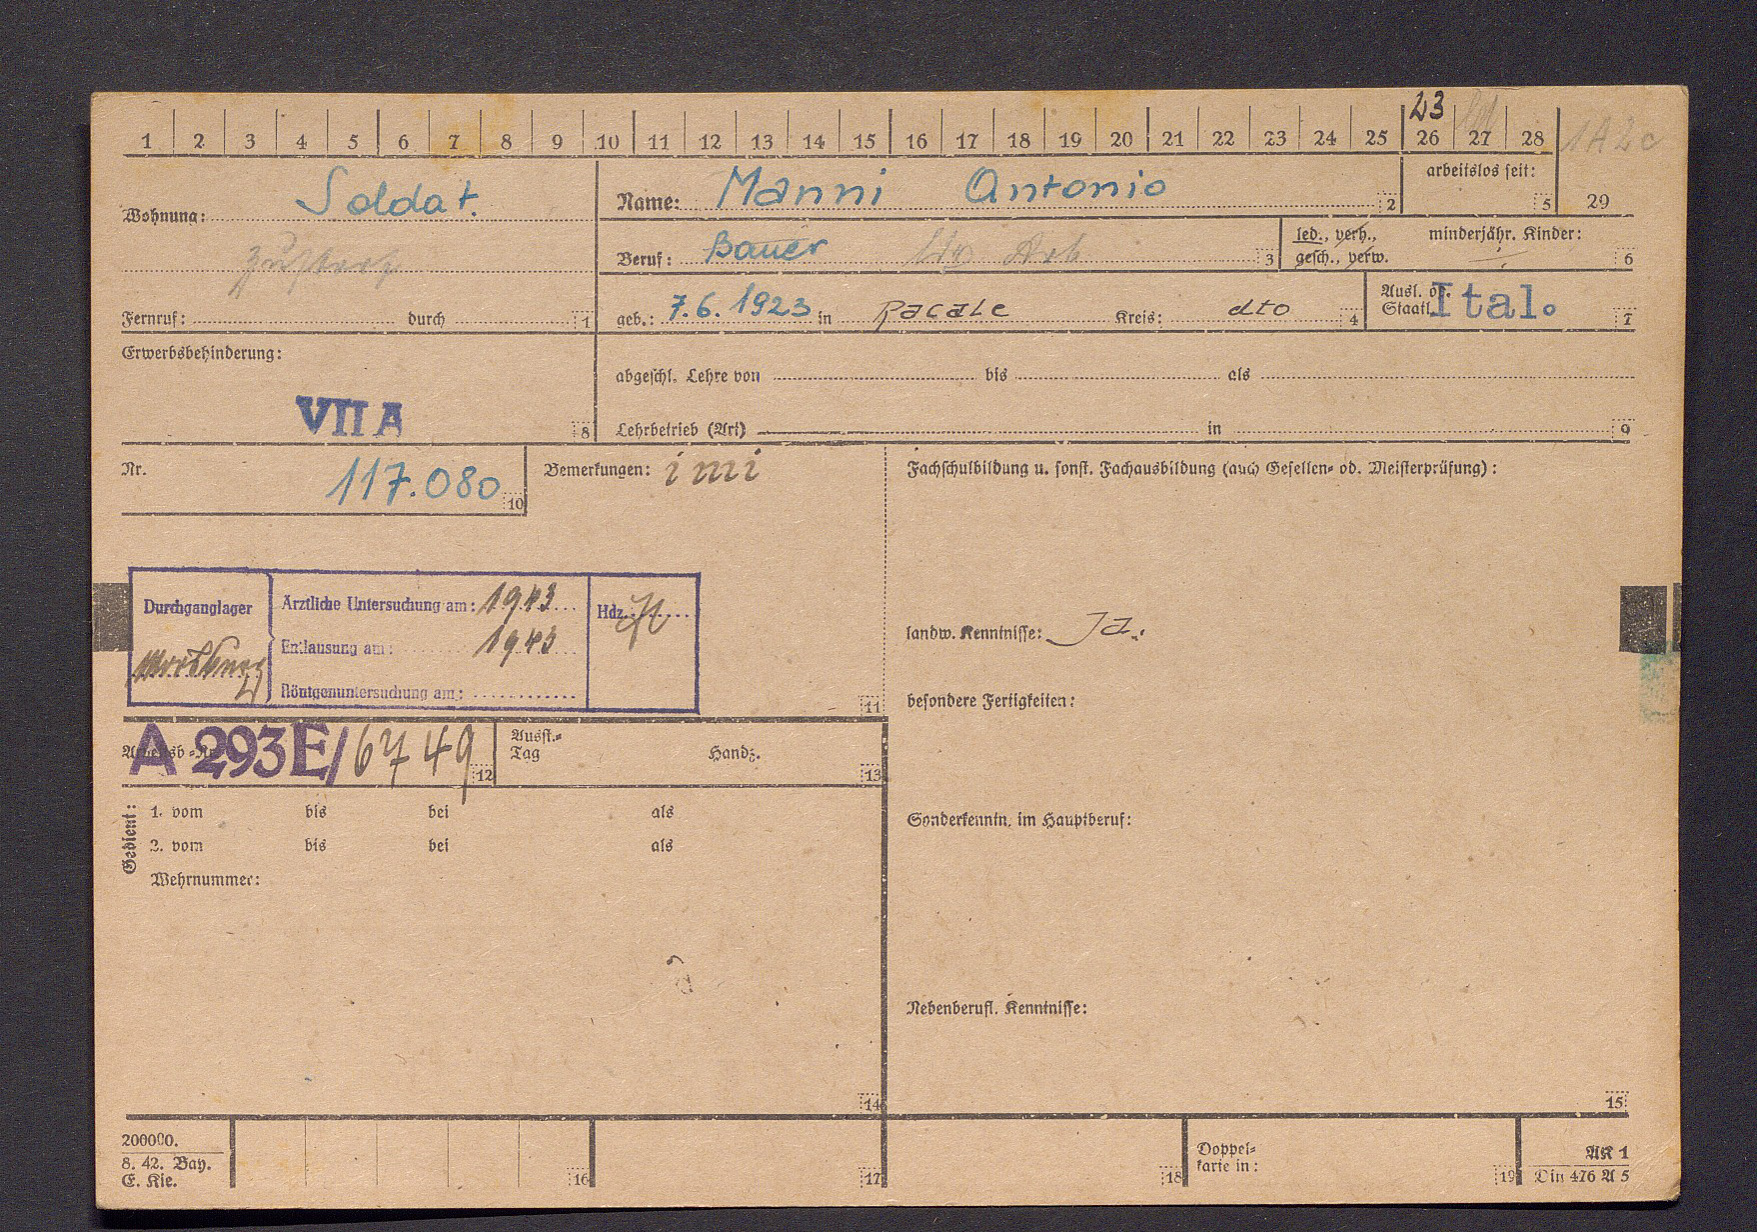 1 2 3 4 5 6 7 8 9 10 11 12 13 14 15 16 17 18 19 20 21 22 23 24 25 26 27 28 29
23
1A2c
Wohnung: Soldat.
Name: Manni Antonio 2
arbeitslos seit: 5
Beruf: Bauer 3
led., verh., gesch., verw.
minderjähr. Kinder: 6
Fernruf: durch 1
geb.: 7.6.1923 in Racale Kreis: dto 4
Ausl. od. Staatl. Ital. 7
Erwerbsbehinderung:
VII A 8
abgeschl. Lehre von bis als
Lehrbetrieb (Art) in 9
Nr. 117.080 10
Bemerkungen: imi
Fachschulbildung u. sonst. Fachausbildung (auch Gesellen- od. Meisterprüfung):
Durchganglager
Ärztliche Untersuchung am: 1943
Entlausung am: 1943
Röntgenuntersuchung am:
Hdz.
11
landw. Kenntnisse: Ja.
besondere Fertigkeiten:
Arbeitsb.-Nr. A 293E/6749 12
Ausst.-Tag Handz. 13
Gedient:
1. vom bis bei als
2. vom bis bei als
Wehrnummer:
14
Sonderkenntn. im Hauptberuf:
Nebenberufl. Kenntnisse:
15
200000.
8. 42. Bay.
E. Kie.
16 17 18
Doppel-
karte in: 19
AK 1
Din 476 A 5